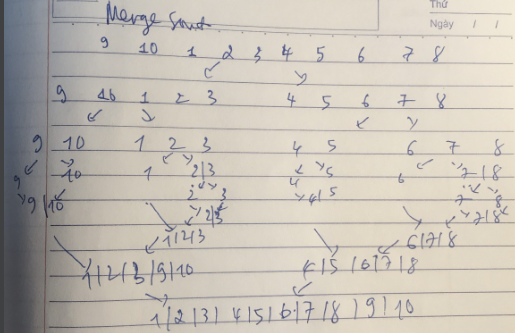 Thứ
Merge Sort
Ngày / /
9 10 1 2 3 4 5 6 7 8
9 10 1 2 3 4 5 6 7 8
9 10 1 2 3 4 5 6 7 8
9 10 1 2|3 4 5 6 7|8
9|10 2 3 4|5 7 8
2|3 7|8
1|2|3 6|7|8
1|2|3|9|10 4|5|6|7|8
1|2|3|4|5|6|7|8|9|10